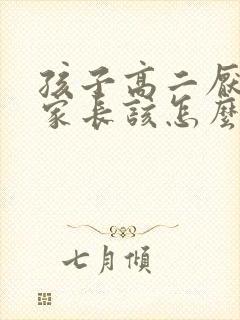 孩子高二厭
家長該怎麼
七月傾